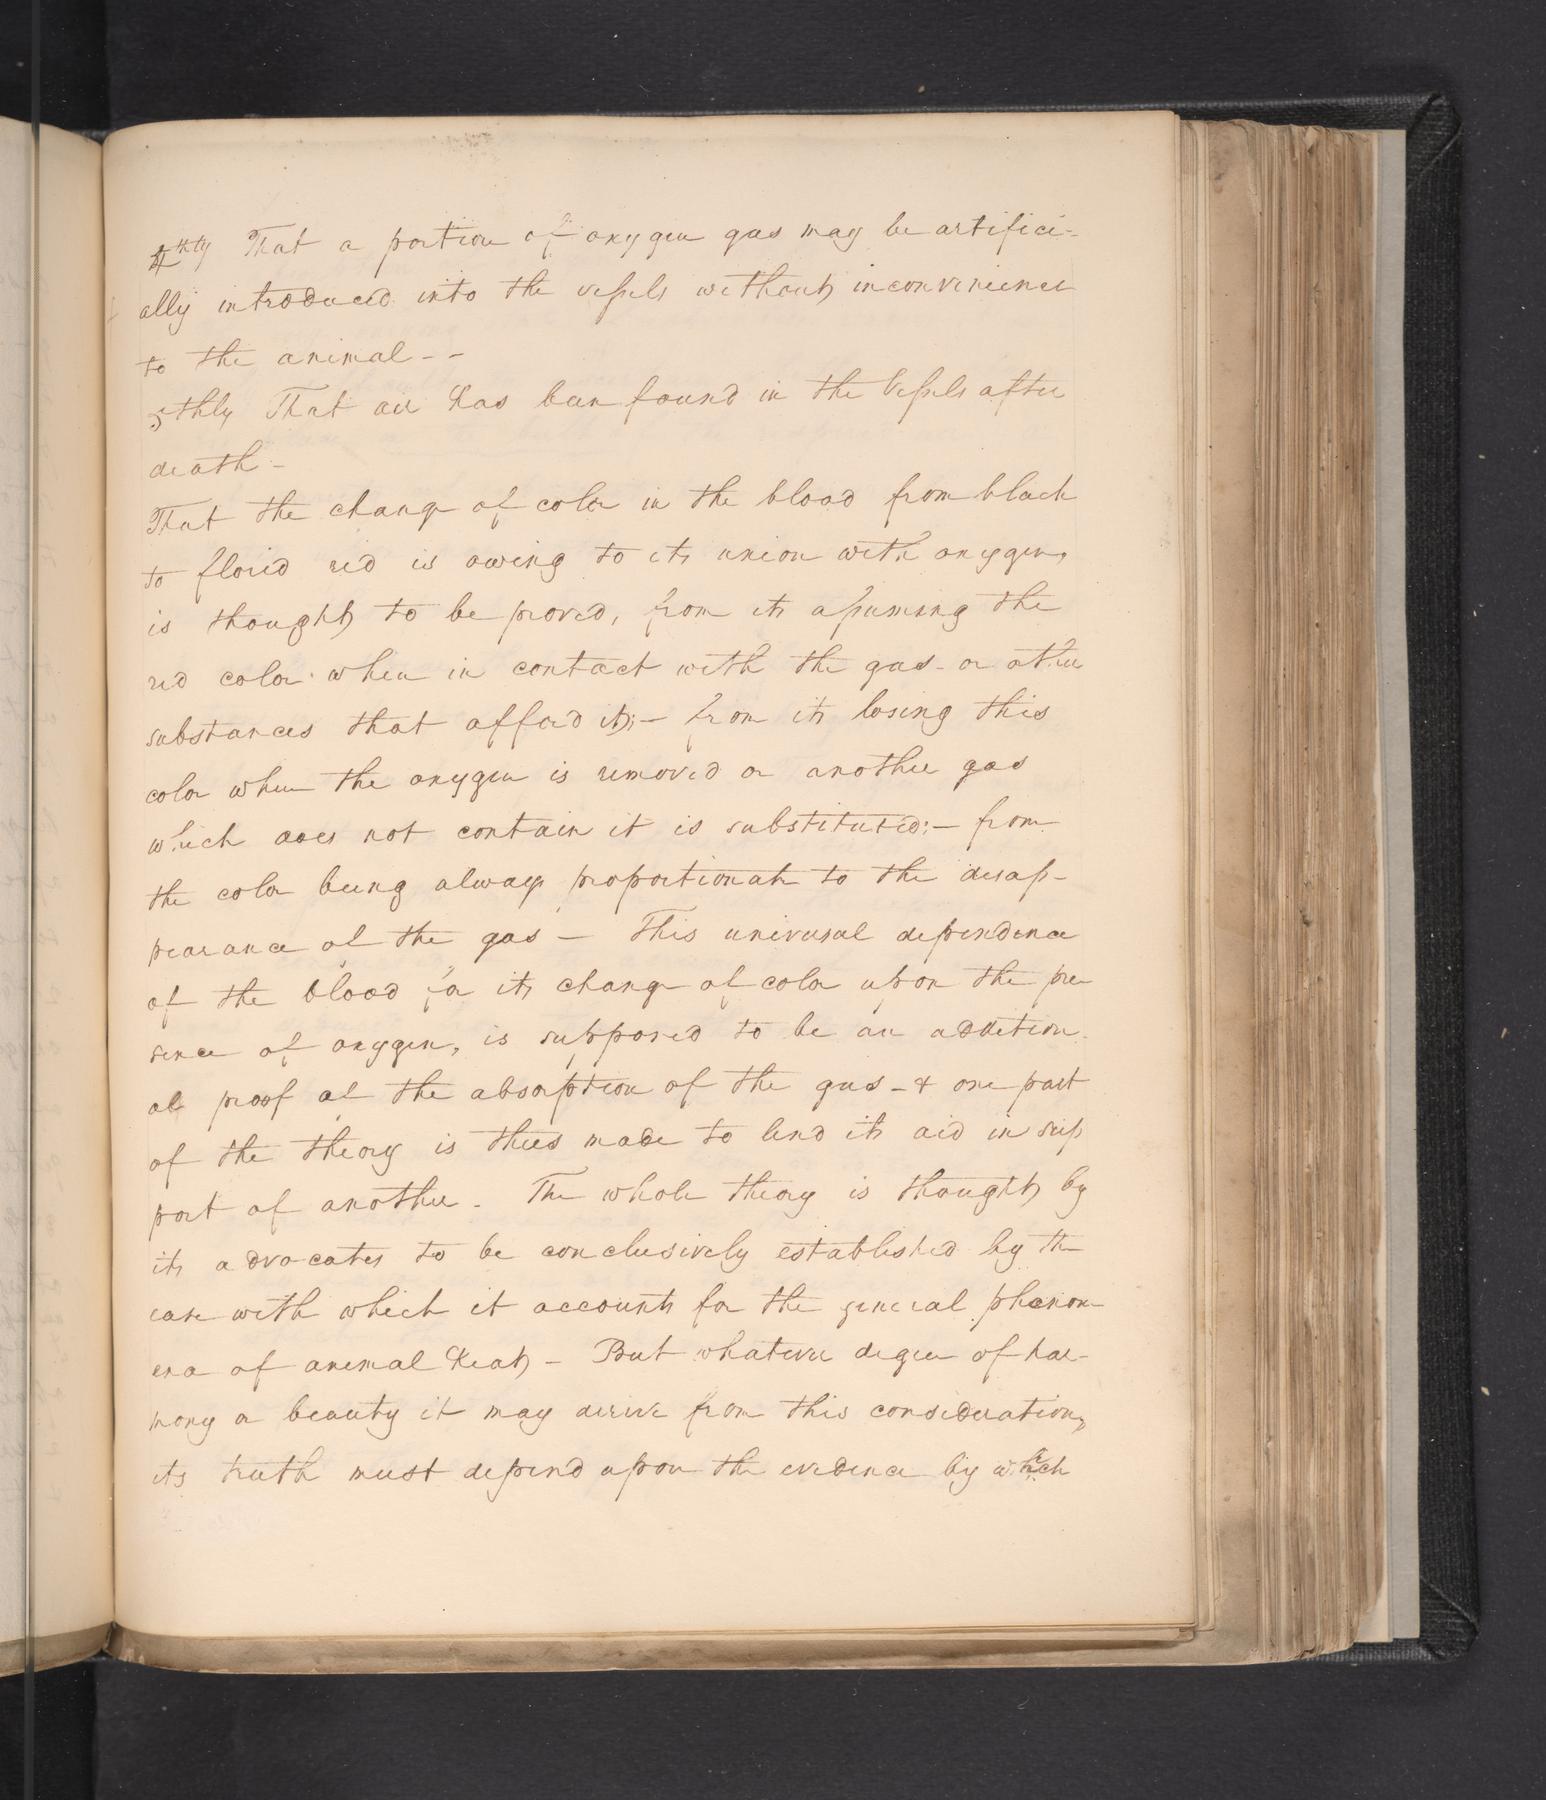 4thly That a portion of oxygen gas may be artifici-
ally introduced into the vessels without inconvenience
to the animal - -
5thly That air has been found in the vessels after
death -
That the change of color in the blood from black
to florid red is owing to its union with oxygen,
is thought to be proved, from its assuming the
red color when in contact with the gas - or other
substances that afford it; - from its losing this
color when the oxygen is removed or another gas
which does not contain it is substituted; - from
the color being always proportionate to the disap-
pearance of the gas - This universal dependence
of the blood for its change of color upon the pre
sence of oxygen, is supposed to be an addition
al proof of the absorption of the gas - & one part
of the theory is thus made to lend its aid in sup
port of another - The whole theory is thought by
its advocates to be conclusively established by the
ease with which it accounts for the general phenom
ena of animal heat - But whatever degree of har-
mony or beauty it may derive from this consideration,
its truth must depend upon the evidence by which